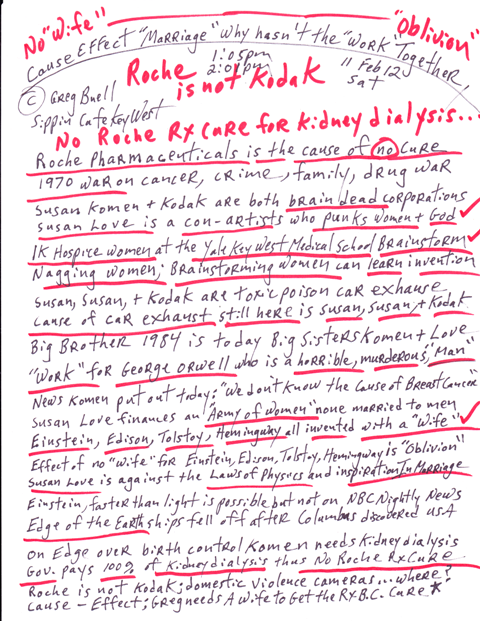 No "Wife" "Oblivion"
Cause Effect "Marriage" Why hasn't the "Work" Together,
1:05pm
2:01pm
11 Feb 12
Sat
Roche
is not Kodak
© Greg Buell
Sippin' Cafe Key West
No Roche Rx Cure for Kidney dialysis...
Roche Pharmaceuticals is the cause of no cure
1970 war on cancer, crime, family, drug war
Susan Komen + Kodak are both brain dead corporations
Susan Love is a con-artists who punks women + God
1K Hospice women at the Yale Key West Medical School Brainstorm
Nagging women; Brainstorming women can learn invention
Susan, Susan, + Kodak are toxic poison car exhause
cause of car exhaust still here is Susan, Susan, + Kodak
Big Brother 1984 is today Big Sisters Komen + Love
"Work" for George Orwell who is a horrible, murderous, "Man"
News Komen put out today; "We don't Know the Cause of Breast Cancer"
Susan Love finances an "Army of Women" none married to men
Einstein, Edison, Tolstoy, Hemingway all invented with a "Wife"
Effect of no "Wife" for Einstein, Edison, Tolstoy, Hemingway is "Oblivion"
Susan Love is against the Laws of Physics and inspiration In Marriage
Einstein, faster than light is possible but not on NBC Nightly News
Edge of the Earth ships fell off after Columbus discovered USA
on Edge over birth control Komen needs Kidney dialysis
Gov. pays 100% of Kidney dialysis thus No Roche Rx Cure
Roche is not Kodak; domestic violence cameras... where?
Cause - Effect; Greg needs A wife to Get the Rx B.C. Cure *